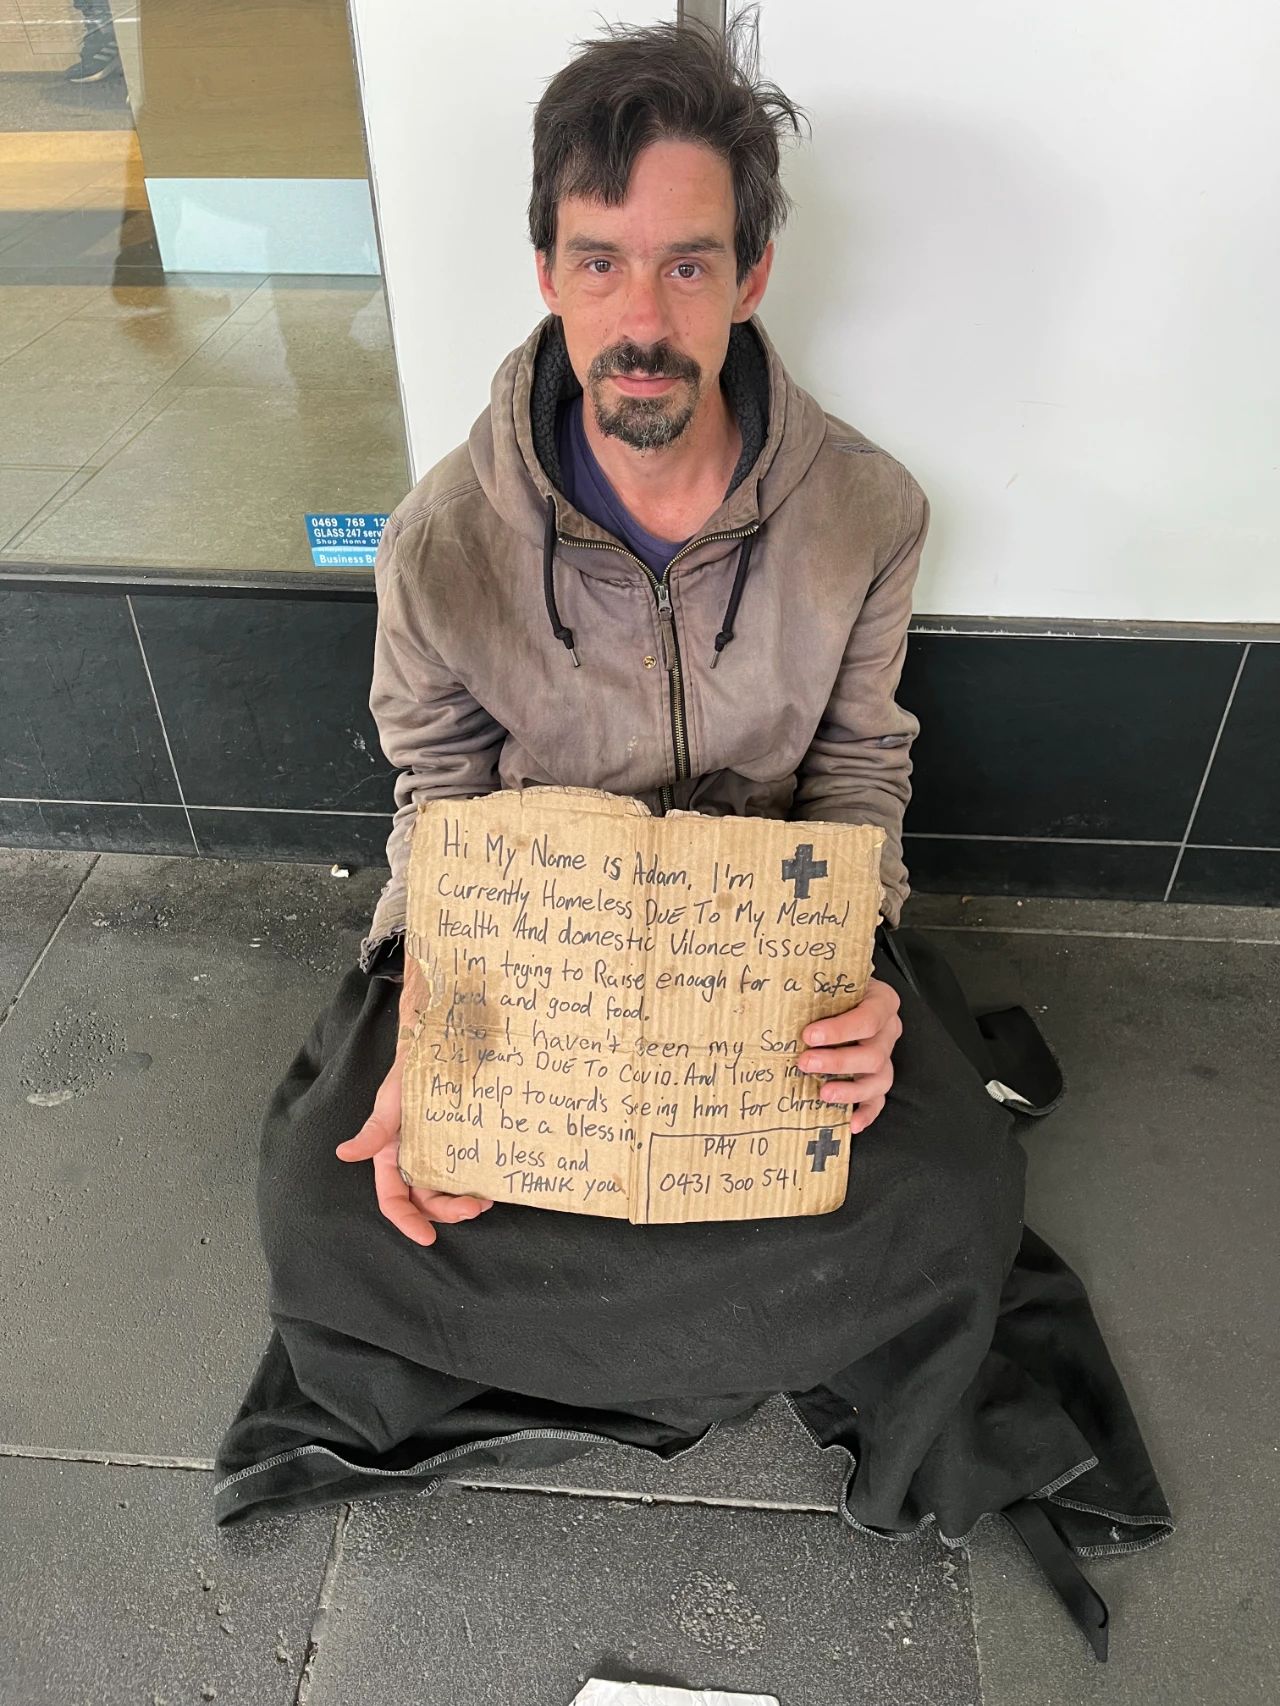 0469 768 12
GLASS 247 serv
Shop Home Of
Business Br
Hi My Name is Adam, I'm
Currently Homeless DUE To My Mental
Health And domestic Vilonce issues
I'm trying to Raise enough for a Safe
bed and good food.
Also I haven't seen my Son
2½ year's DUE TO COVID. And lives in
Any help toward's seeing him for Christm
would be a blessing.
god bless and
THANK you
PAY ID
0431 300 541.